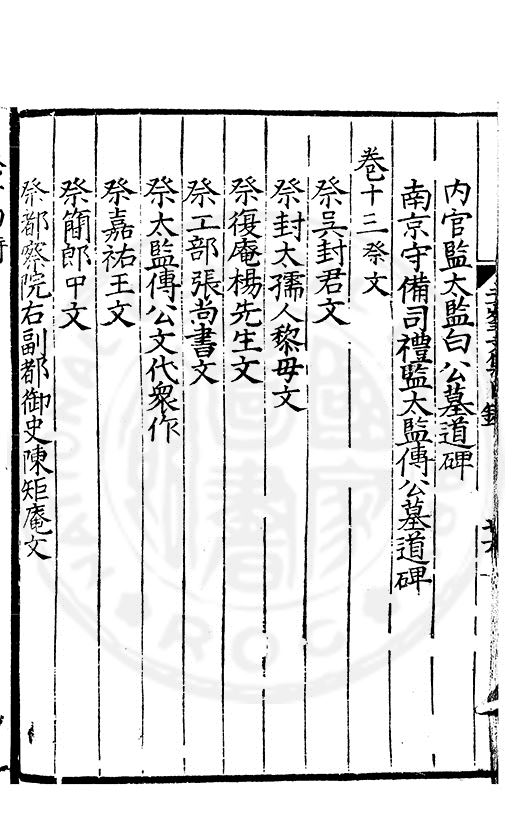 內官監太監白公墓道碑
南京守備司禮監太監傅公墓道碑
卷十三祭文
祭吳封君文
祭封太孺人黎母文
祭復庵楊先生文
祭工部張尚書文
祭太監傅公文代衆作
祭嘉祐王文
祭簡郎中文
祭都察院右副都御史陳矩庵文